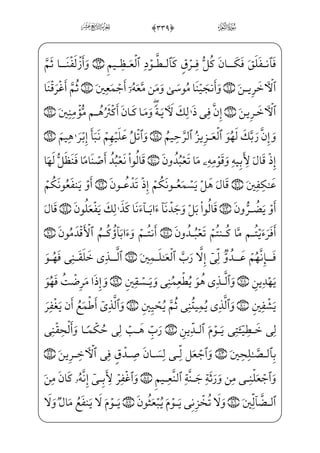 الجزء التاسع عشر ﴿٣٣٩﴾ سورة الشعراء
فَٱنفَلَقَ فَكَانَ كُلُّ فِرْقٍ كَٱلطَّوْدِ ٱلْعَظِيمِ ۝٦٣ وَأَزْلَفْنَا ثَمَّ
ٱلْآخَرِينَ ۝٦٤ وَأَنجَيْنَا مُوسَىٰ وَمَن مَّعَهُۥٓ أَجْمَعِينَ ۝٦٥ ثُمَّ أَغْرَقْنَا
ٱلْآخَرِينَ ۝٦٦ إِنَّ فِى ذَٰلِكَ لَآيَةً ۖ وَمَا كَانَ أَكْثَرُهُم مُّؤْمِنِينَ ۝٦٧
وَإِنَّ رَبَّكَ لَهُوَ ٱلْعَزِيزُ ٱلرَّحِيمُ ۝٦٨ وَٱتْلُ عَلَيْهِمْ نَبَأَ إِبْرَٰهِيمَ ۝٦٩
إِذْ قَالَ لِأَبِيهِ وَقَوْمِهِۦ مَا تَعْبُدُونَ ۝٧٠ قَالُوا۟ نَعْبُدُ أَصْنَامًا فَنَظَلُّ لَهَا
عَٰكِفِينَ ۝٧١ قَالَ هَلْ يَسْمَعُونَكُمْ إِذْ تَدْعُونَ ۝٧٢ أَوْ يَنفَعُونَكُمْ
أَوْ يَضُرُّونَ ۝٧٣ قَالُوا۟ بَلْ وَجَدْنَآ ءَابَآءَنَا كَذَٰلِكَ يَفْعَلُونَ ۝٧٤ قَالَ
أَفَرَءَيْتُم مَّا كُنتُمْ تَعْبُدُونَ ۝٧٥ أَنتُمْ وَءَابَآؤُكُمُ ٱلْأَقْدَمُونَ ۝٧٦
فَإِنَّهُمْ عَدُوٌّ لِّىٓ إِلَّا رَبَّ ٱلْعَٰلَمِينَ ۝٧٧ ٱلَّذِى خَلَقَنِى فَهُوَ
يَهْدِينِ ۝٧٨ وَٱلَّذِى هُوَ يُطْعِمُنِى وَيَسْقِينِ ۝٧٩ وَإِذَا مَرِضْتُ فَهُوَ
يَشْفِينِ ۝٨٠ وَٱلَّذِى يُمِيتُنِى ثُمَّ يُحْيِينِ ۝٨١ وَٱلَّذِىٓ أَطْمَعُ أَن يَغْفِرَ
لِى خَطِيٓـَٔتِى يَوْمَ ٱلدِّينِ ۝٨٢ رَبِّ هَبْ لِى حُكْمًا وَأَلْحِقْنِى
بِٱلصَّٰلِحِينَ ۝٨٣ وَٱجْعَل لِّى لِسَانَ صِدْقٍ فِى ٱلْآخِرِينَ ۝٨٤
وَٱجْعَلْنِى مِن وَرَثَةِ جَنَّةِ ٱلنَّعِيمِ ۝٨٥ وَٱغْفِرْ لِأَبِىٓ إِنَّهُۥ كَانَ مِنَ
ٱلضَّآلِّينَ ۝٨٦ وَلَا تُخْزِنِى يَوْمَ يُبْعَثُونَ ۝٨٧ يَوْمَ لَا يَنفَعُ مَالٌ وَلَا